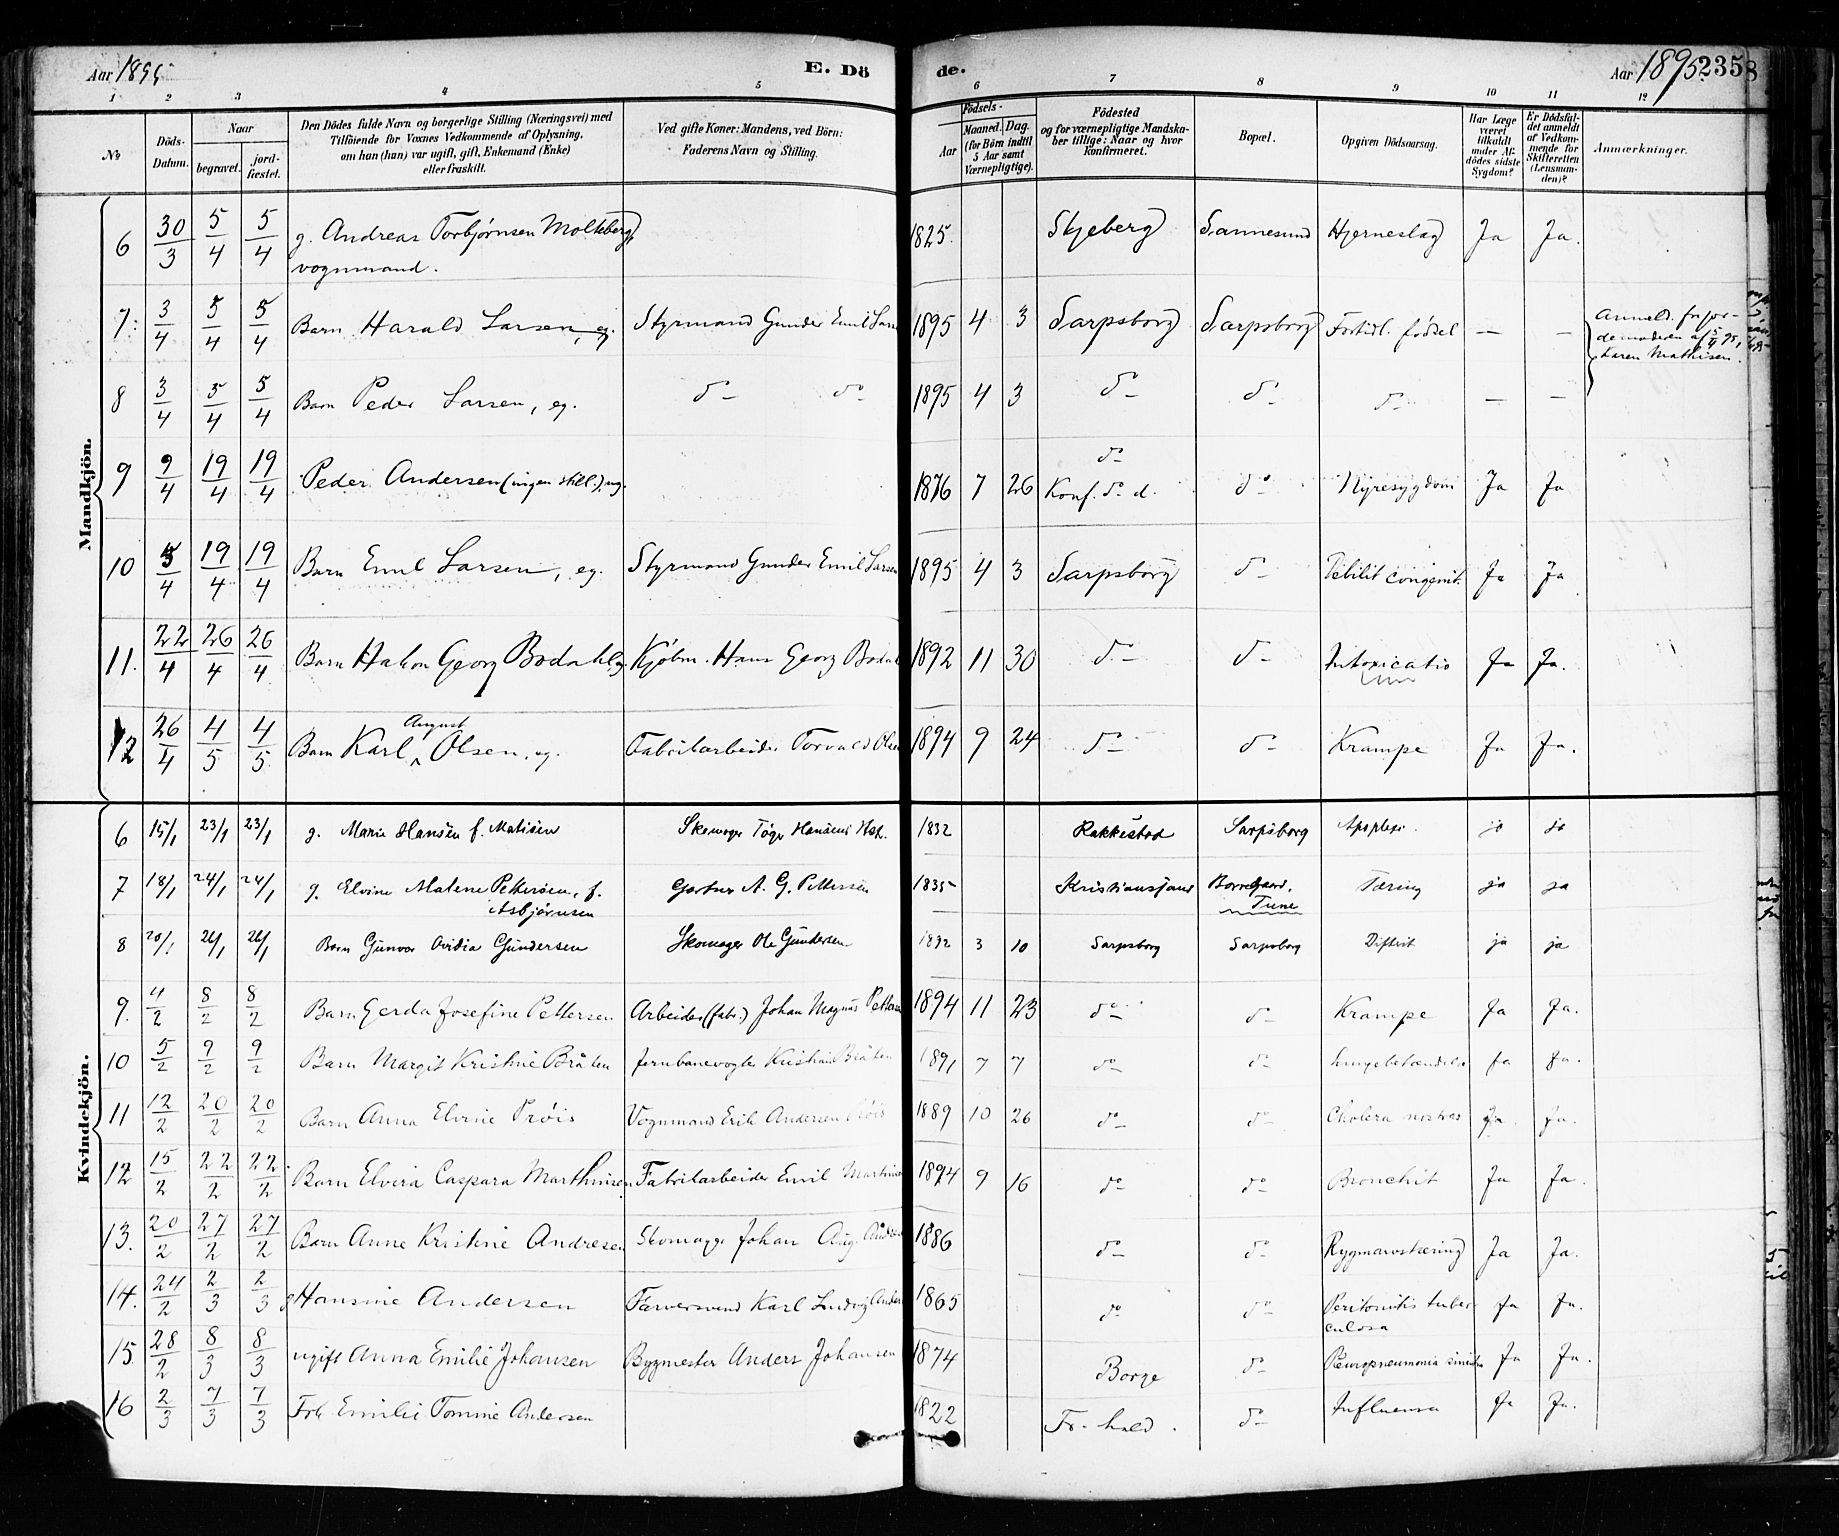 Aar 1895 E. Dö
de. Aar 1895 235 8
1 2 3 4 5 6 7 8 9 10 11 12
No
Döds-Datum.
Naar
begravet. jordfæstet.
Den Dödes fulde Navn og borgerlige Stilling (Næringsvei) med
Tilföiende for Voxnes Vedkommende af Oplysning,
om han (hun) var ugift, gift, Enkemand (Enke)
eller fraskilt.
Ved gifte Koner: Mandens, ved Börn:
Faderens Navn og Stilling.
Födsels-
Aar Maaned. Dag.
(for Börn indtil
5 Aar samt
Værnepligtige).
Födested
og for værnepligtige Mandska-
ber tillige: Naar og hvor
konfirmeret.
Bopæl.
Opgiven Dödsaarsag.
Har Læge
været
tilkaldt
under Af-
dödes sidste
Sygdom?
Er Dödsfal-
det anmeldt
af Vedkom-
mende for
Skifteretten
(Lensman-
den)?
Anmærkninger.
Mandkjön.
6 30/3 5/4 5/4 g. Andreas Torbjørnsen Molteberg, 1825. Skjeberg Sannesund Hjerneslag Ja Ja.
vognmand.
7. 3/4 5/4 5/4 Barn Harald Larsen, eg. Styrmand Gunder Emil Larsen 1895 4 3 Sarpsborg Sarpsborg Fortidl. fødsel — — Anmeld. fr jor-
demoderen af 5/4 95,
Karen Mathisen.
8 3/4 5/4 5/4 Barn Peder Larsen, eg. do do 1895 4 3 do do do — —
9 9/4 19/4 19/4 Peder Andersen (ingen still.), ug. 1876 7 26 do Konf. do d. do Nyresygdom Ja Ja
10 5/4 19/4 19/4 Barn Emil Larsen, eg. Styrmand Gunder Emil Larsen 1895 4 3 Sarpsborg do Debilit congenit. Ja Ja
11. 22/4 26/4 26/4 Barn Hakon Georg Bodahl, eg. Kjøbm. Hans Georg Bodahl 1892 11 30 do do Intoxicatio Ja Ja.
12 26/4 4/5 4/5 Barn Karl August Olsen, eg. Fabrikarbeider Torvald Olsen 1894 9 24 do do Krampe Ja Ja.
Kvindekjön.
6 15/1 23/1 23/1 g. Marie Hansen f. Matisen Skomager Hansens 1832 Rakkestad Sarpsborg Apoplexi. ja ja
7 18/1 24/1 24/1 g. Elvine Malene Pettersen, f. Gartner A. G. Pettersen 1835 Kristiansand Borregaard, Tæring ja ja
Asbjørnsen Tune
8 20/1 26/1 26/1 Barn Gunvor Ovidia Gundersen Skomager Ole Gundersen 1892 3 10 Sarpsborg Sarpsborg Difterit ja ja
9. 4/2 8/2 8/2 Barn Gerda Josefine Pettersen Arbeider (fabr.) Johan Magnus Pettersen 1894 11 23 do do Krampe Ja Ja.
10 5/2 9/2 9/2 Barn Margit Kristine Bråten Jernbanevogter Kristian Bråten 1891 7 7 do do Lungebetændelse Ja Ja.
11 12/2 20/2 20/2 Barn Anna Elvine Prøis Vognmand Erik Andersen Prøis 1889 10 26 do do Cholera nostras Ja. Ja.
12 15/2 22/2 22/2 Barn Elvira Caspara Marthinsen Fabrikarbeider Emil Martinsen 1894 9 16 do do Bronchit Ja Ja.
13. 20/2 27/2 27/2 Barn Anne Kristine Andresen Skomager Johan Aug. Andresen 1886 do do Rygmarvstæring Ja Ja.
14. 24/2 2/3 2/3 g Hansine Andersen Farversvend Karl Ludvig Andersen 1865 do do Peritonitis tuber- Ja Ja.
culosa
15 28/2 8/3 8/3 ugift Anna Emilie Johansen Bygmester Anders Johansen 1874 Borge do Pleuropneumonia Ja Ja.
16 2/3 7/3 7/3 Frk Emilie Tomine Andersen 1822 Fr.hald. do Influensa Ja Ja.